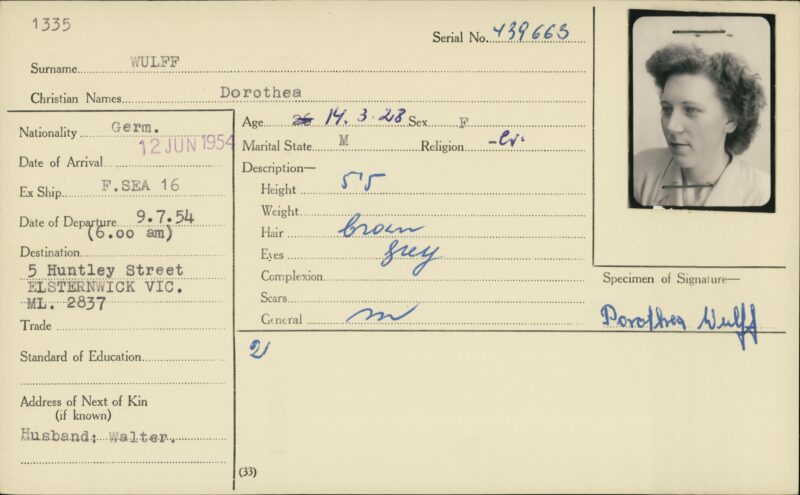 1335
Serial No. 439663
Surname WULFF
Christian Names Dorothea
Nationality Germ.
12 JUN 1954
Date of Arrival
Ex Ship F.SEA 16
Date of Departure 9.7.54
(6.00 am)
Destination
5 Huntley Street
ELSTERNWICK VIC.
ML. 2837
Trade
Standard of Education
Address of Next of Kin
(if known)
Husband: Walter.
Age 26 14.3.28 Sex F
Marital State M Religion -Ev.
Description—
Height 5'5
Weight
Hair brown
Eyes grey
Complexion
Scars
General m
2
(33)
Specimen of Signature—
Dorothea Wulff